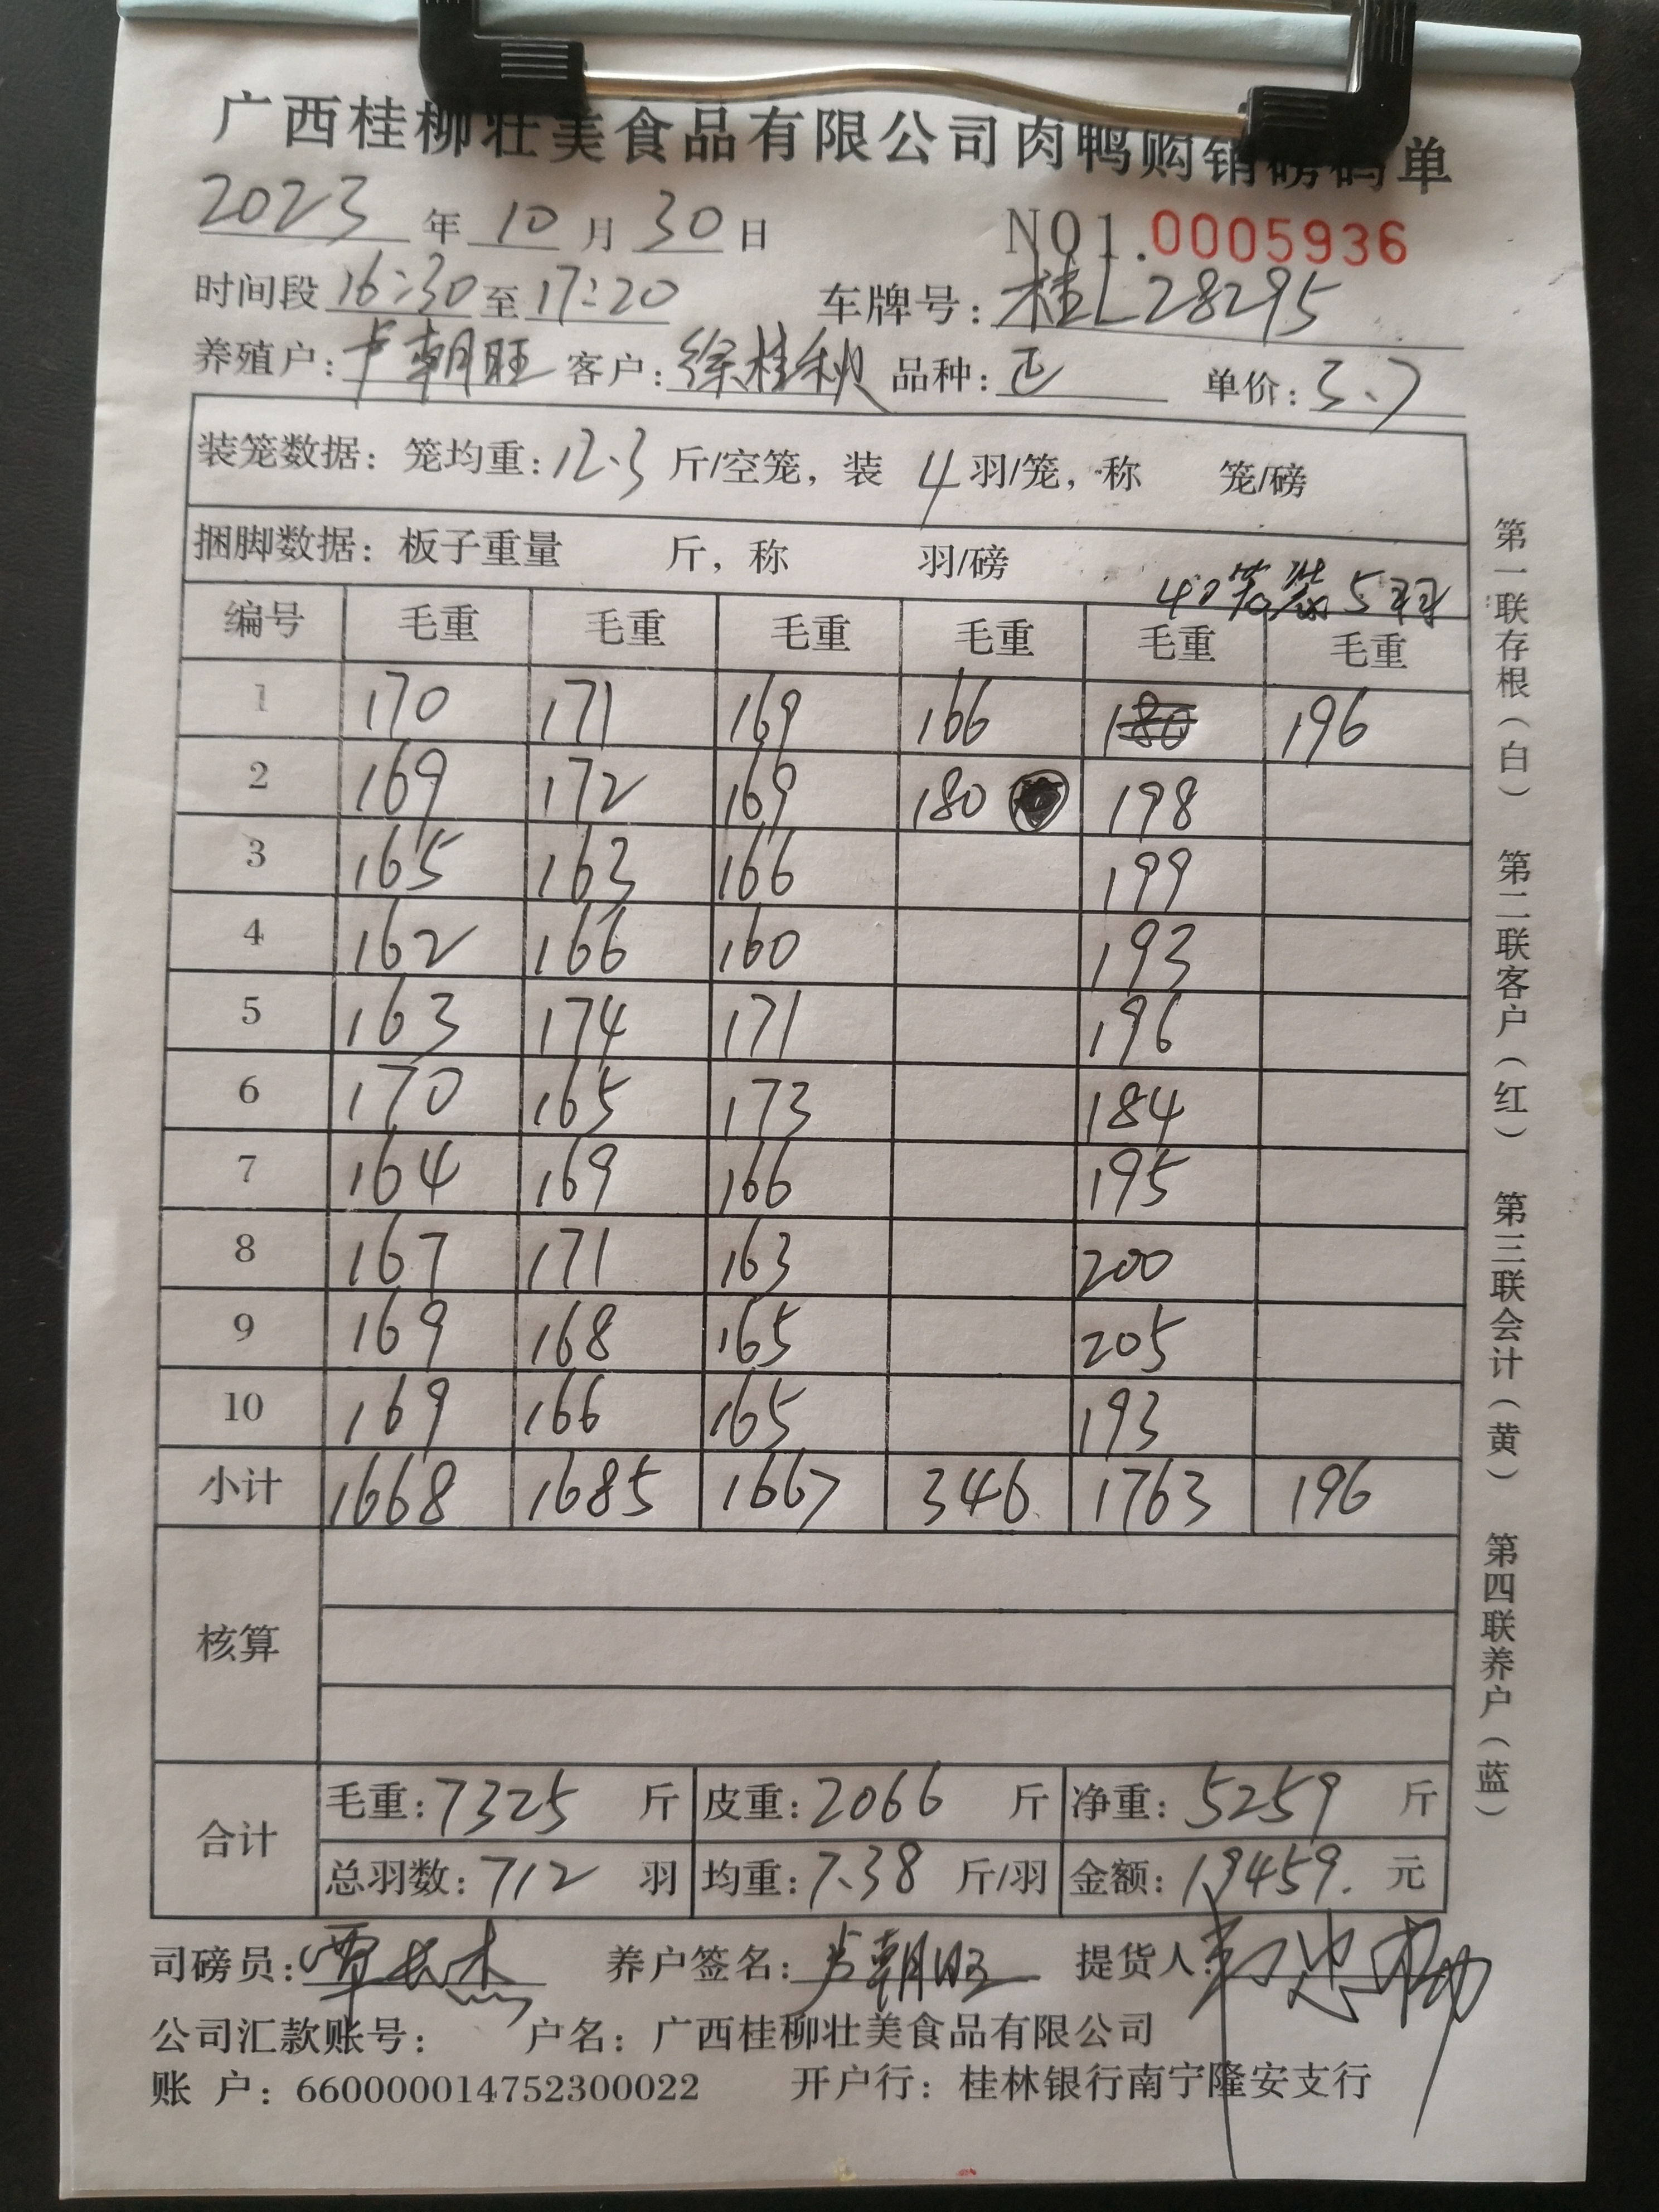 广西桂柳壮美食品有限公司肉鸭购销磅码单
2023 年 10 月 30 日 NO1.0005936
时间段 16:30 至 17:20 车牌号: 桂L28295
养殖户: 卢朝旺 客户: 徐桂秋 品种: 正 单价: 3.7
装笼数据: 笼均重: 12.3 斤/空笼, 装 4 羽/笼, 称 笼/磅
捆脚数据: 板子重量 斤, 称 羽/磅
40笼装5羽
编号 毛重 毛重 毛重 毛重 毛重 毛重
1 170 171 169 166 180 196
2 169 172 169 180 198
3 165 163 166 199
4 162 166 160 193
5 163 174 171 196
6 170 165 173 184
7 164 169 166 195
8 167 171 163 200
9 169 168 165 205
10 169 166 165 193
小计 1668 1685 1667 346 1763 196
核算
合计
毛重: 7325 斤 皮重: 2066 斤 净重: 5259 斤
总羽数: 712 羽 均重: 7.38 斤/羽 金额: 19459. 元
司磅员: 养户签名: 卢朝旺 提货人:
公司汇款账号: 户名: 广西桂柳壮美食品有限公司
账 户: 660000014752300022 开户行: 桂林银行南宁隆安支行
第一联存根(白) 第二联客户(红) 第三联会计(黄) 第四联养户(蓝)